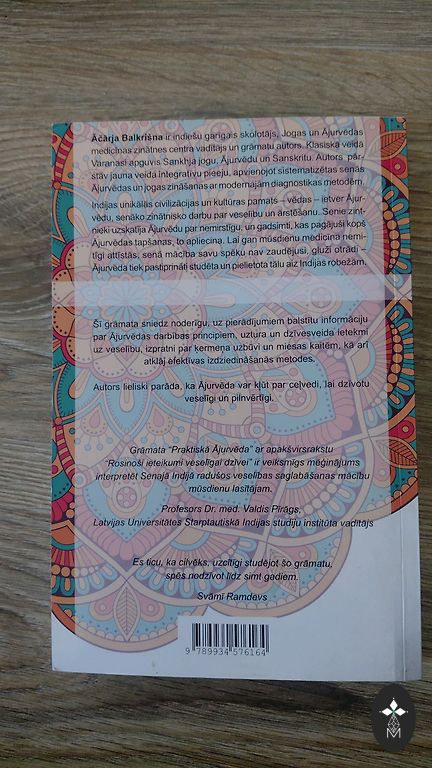 Āčārja Balkrišna ir indiešu garīgais skolotājs, Jogas un Ājurvēdas
medicīnas zinātnes centra vadītājs un grāmatu autors. Klasiskā veidā
Varanasi apguvis Sankhja jogu, Ājurvēdu un Sanskritu. Autors pār-
stāv jauna veida integratīvu pieeju, apvienojot sistematizētas senās
Ājurvēdas un jogas zināšanas ar modernajām diagnostikas metodēm.
Indijas unikālās civilizācijas un kultūras pamats – vēdas – ietver Ājur-
vēdu, senāko zinātnisko darbu par veselību un ārstēšanu. Senie zint-
nieki uzskatīja Ājurvēdu par nemirstīgu, un gadsimti, kas pagājuši kopš
Ājurvēdas tapšanas, to apliecina. Lai gan mūsdienu medicīna nemi-
tīgi attīstās, senā mācība savu spēku nav zaudējusi, gluži otrādi –
Ājurvēda tiek pastiprināti studēta un pielietota tālu aiz Indijas robežām.
Šī grāmata sniedz noderīgu, uz pierādījumiem balstītu informāciju
par Ājurvēdas darbības principiem, uztura un dzīvesveida ietekmi
uz veselību, izpratni par ķermeņa uzbūvi un miesas kaitēm, kā arī
atklāj efektīvas izdziedināšanās metodes.
Autors lieliski parāda, ka Ājurvēda var kļūt par ceļvedi, lai dzīvotu
veselīgi un pilnvērtīgi.
Grāmata "Praktiskā Ājurvēda" ar apakšvirsrakstu
"Rosinoši ieteikumi veselīgai dzīvei" ir veiksmīgs mēģinājums
interpretēt Senajā Indijā radušos veselības saglabāšanas mācību
mūsdienu lasītājam.
Profesors Dr. med. Valdis Pīrāgs,
Latvijas Universitātes Starptautiskā Indijas studiju institūta vadītājs
Es ticu, ka cilvēks, uzcītīgi studējot šo grāmatu,
spēs nodzīvot līdz simt gadiem.
Svāmī Ramdevs
9 789934 576164
M